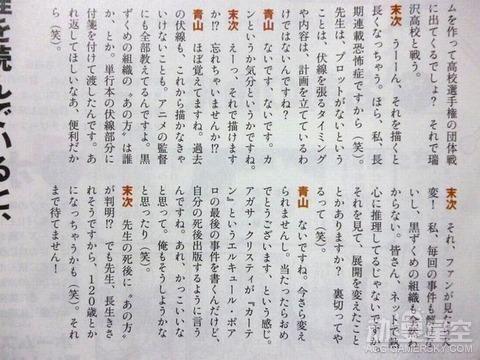 ムを作って高校選手権の団体戦
に出てくるでしょ? それで瑞
沢高校と戦う。
末次 うーーん、それを描くと
長くなっちゃう。ほら、私、長
期連載恐怖症ですから(笑)。
先生は、プロットがないという
ことは、伏線を張るタイミング
や内容は、計画を立てているわ
けではないんですね?
青山 ないです、ないです。カ
ンというか気分というかですね。
末次 えーっ、それで描けます
か!? 忘れちゃいませんか!?
青山 ほぼ覚えてますね。過去
の伏線も、これから描かなきゃ
いけないことも。アニメの監督
にも全部教えてるんですよ。黒
ずくめの組織の〝あの方〟は誰
か、とか。単行本の伏線部分に
付箋を付けて渡したんです。あ
れ返してほしいなあ、便利だか
ら(笑)。
末次 それ、ファンが見たら大
変! 私、毎回の事件も解けな
いし、黒ずくめの組織も全然わ
からない。皆さん、ネットで熱
心に推理してるじゃないですか。
それを見て、展開を変えたこと
とかありますか? 裏切ってや
るって(笑)。
青山 ないですね。今さら変え
られませんし。当たったらおめ
でとうございます、という感じ。
アガサ・クリスティが『カーテ
ン』というエルキュール・ポア
ロの最後の事件を書くんだけど、
自分の死後出版するように言う
んですね。あれ、かっこいいな
と思って。俺もそうしようかな
と思ったり(笑)。
末次 先生の死後に〝あの方〟
が判明!? でも先生、長生きさ
れそうですから、120歳とか
になっちゃうかも(笑)。それ
まで待てません!
を読んでいると、
动漫星空
ACG.GAMERSKY.COM